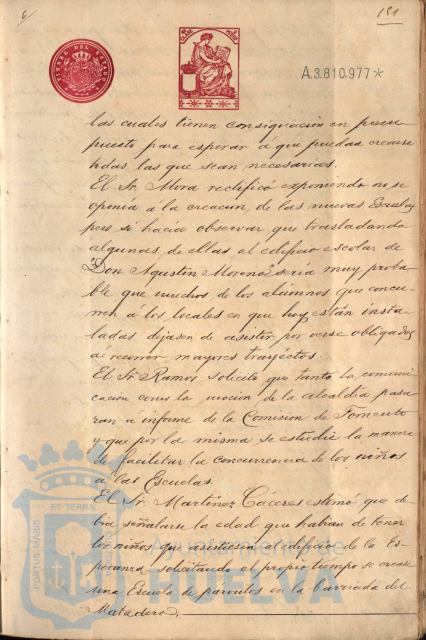 151
TIMBRE DEL ESTADO
A.3.810.977*
las cuales tienen consignación en presu-
puesto para esperar a que puedan crearse
todas las que sean necesarias.
El Sr. Mora rectificó exponiendo no se
oponia á la creacion de las nuevas Escuelas
pero si hacia observar que trasladando
algunas de ellas al edificio escolar de
"Don Agustin Moreno" seria muy proba-
ble que muchos de los alumnos que concu-
rren á los locales en que hoy están insta-
ladas dejasen de asistir por verse obligados
á recorrer mayores trayectos.
El Sr. Ramos solicitó que tanto la comuni-
cación como la moción de la alcaldia pasa-
ran a informe de la Comisión de Fomento
y que por la misma se estudie la manera
de facilitar la concurrencia de los niños
a las Escuelas.
El Sr. Martinez Cáceres estimó que de-
bia señalarse la edad que habian de tener
los niños que asistiesen al edificio de la Es-
peranza solicitando al propio tiempo se crease
una Escuela de parvulos en la barriada del
Matadero.
PORTUS MARIS ET TERRA
Ayuntamiento de
HUELVA